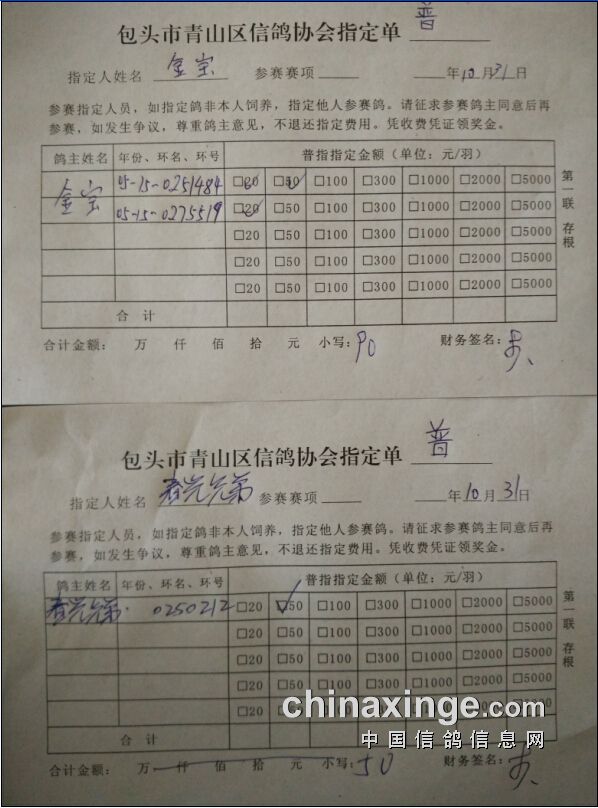 包头市青山区信鸽协会指定单 普
指定人姓名 金宝 参赛赛项 年10月31日
参赛指定人员，如指定鸽非本人饲养，指定他人参赛鸽。请征求参赛鸽主同意后再
参赛，如发生争议，尊重鸽主意见，不退还指定费用。凭收费凭证领奖金。
鸽主姓名 年份、环名、环号 普指指定金额（单位：元/羽）
金宝 05-15-0251484 □20 □50 □100 □300 □1000 □2000 □5000
05-15-0275519 □20 □50 □100 □300 □1000 □2000 □5000
□20 □50 □100 □300 □1000 □2000 □5000
□20 □50 □100 □300 □1000 □2000 □5000
□20 □50 □100 □300 □1000 □2000 □5000
合 计
第一联 存根
合计金额： 万 仟 佰 拾 元 小写：90 财务签名：
包头市青山区信鸽协会指定单 普
指定人姓名 春光兄弟 参赛赛项 年10月31日
参赛指定人员，如指定鸽非本人饲养，指定他人参赛鸽。请征求参赛鸽主同意后再
参赛，如发生争议，尊重鸽主意见，不退还指定费用。凭收费凭证领奖金。
鸽主姓名 年份、环名、环号 普指指定金额（单位：元/羽）
春光兄弟 0250212 □20 □50 □100 □300 □1000 □2000 □5000
□20 □50 □100 □300 □1000 □2000 □5000
□20 □50 □100 □300 □1000 □2000 □5000
□20 □50 □100 □300 □1000 □2000 □5000
□20
合 计
第一联 存根
chinaxinge.com
中国信鸽信息网
合计金额： 万 仟 佰 拾 元 小写：50 财务签名：